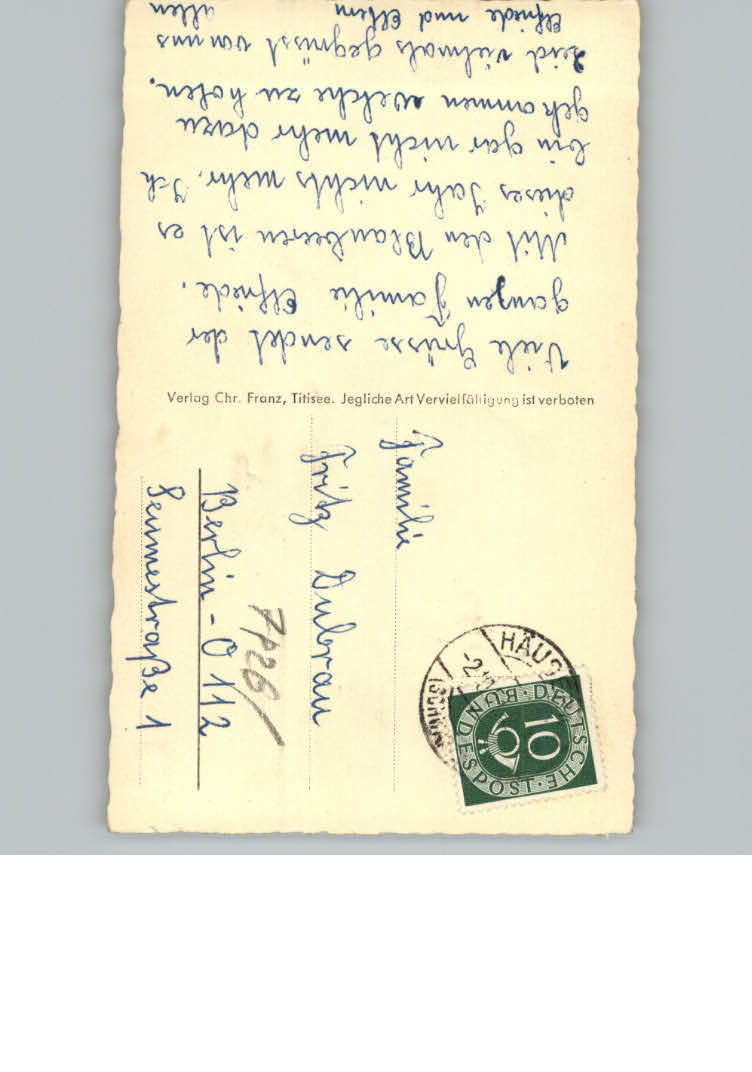 Viele Grüsse sendet der
ganzen Familie Elfriede.
Mit den Blaubeeren ist es
dieses Jahr nichts mehr. Ich
bin gar nicht mehr dazu
gekommen welche zu holen.
Seid vielmals gegrüsst von uns
allen
Elfriede und Eltern
Verlag Chr. Franz, Titisee. Jegliche Art Vervielfältigung ist verboten
Familie
Fritz Dubrau
Berlin-O 112
Seumestraße 1
HÄUS
-2.
(SCHWARZW
10
DEUTSCHE
BUNDESPOST